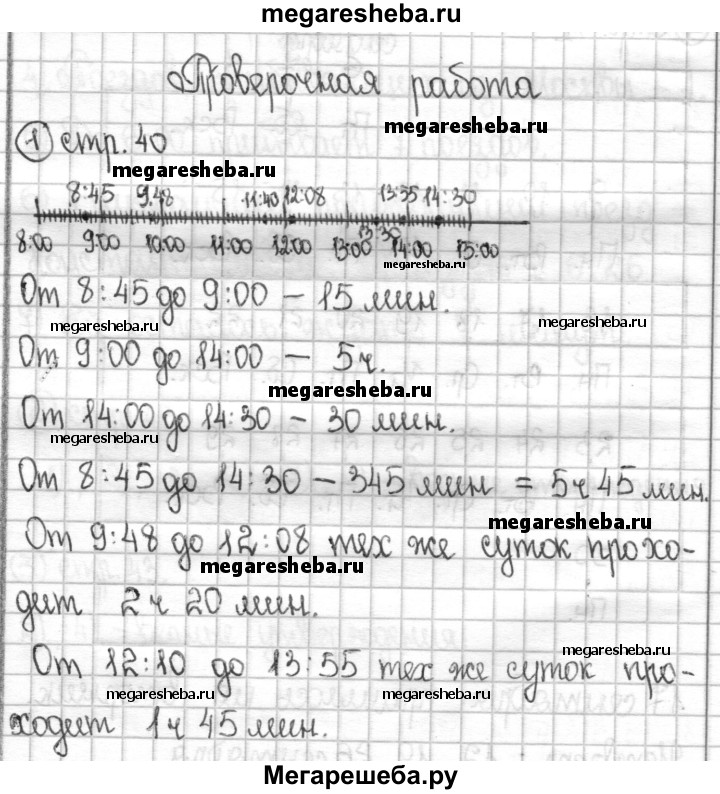 megaresheba.ru
Проверочная работа
megaresheba.ru
1 стр. 40
megaresheba.ru
8:45 9.48 11:40 12:08 13:55 14:30
13:30
8:00 9:00 10:00 11:00 12:00 13:00 14:00 15:00
megaresheba.ru
От 8:45 до 9:00 – 15 мин.
megaresheba.ru megaresheba.ru
От 9:00 до 14:00 – 5 ч.
megaresheba.ru
От 14:00 до 14:30 – 30 мин.
megaresheba.ru
От 8:45 до 14:30 – 345 мин = 5 ч 45 мин.
megaresheba.ru
От 9:48 до 12:08 тех же суток прохо-
megaresheba.ru
дит 2 ч 20 мин.
megaresheba.ru
От 12:10 до 13:55 тех же суток про-
megaresheba.ru megaresheba.ru
ходит 1 ч 45 мин.
Мегарешеба.ру